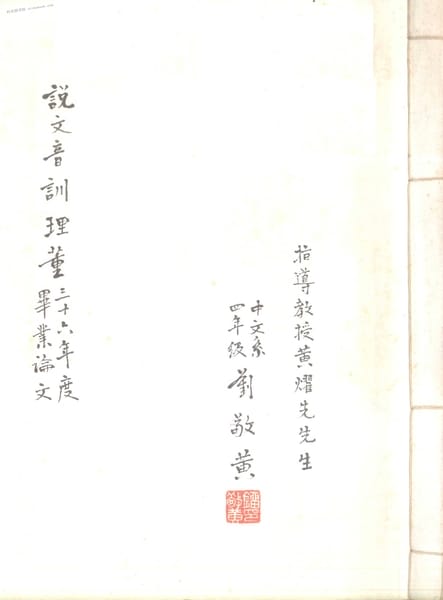 指導教授黃燿先先生
中文系
四年級
劉敬黃
說文音訓理董
三十六年度
畢業論文